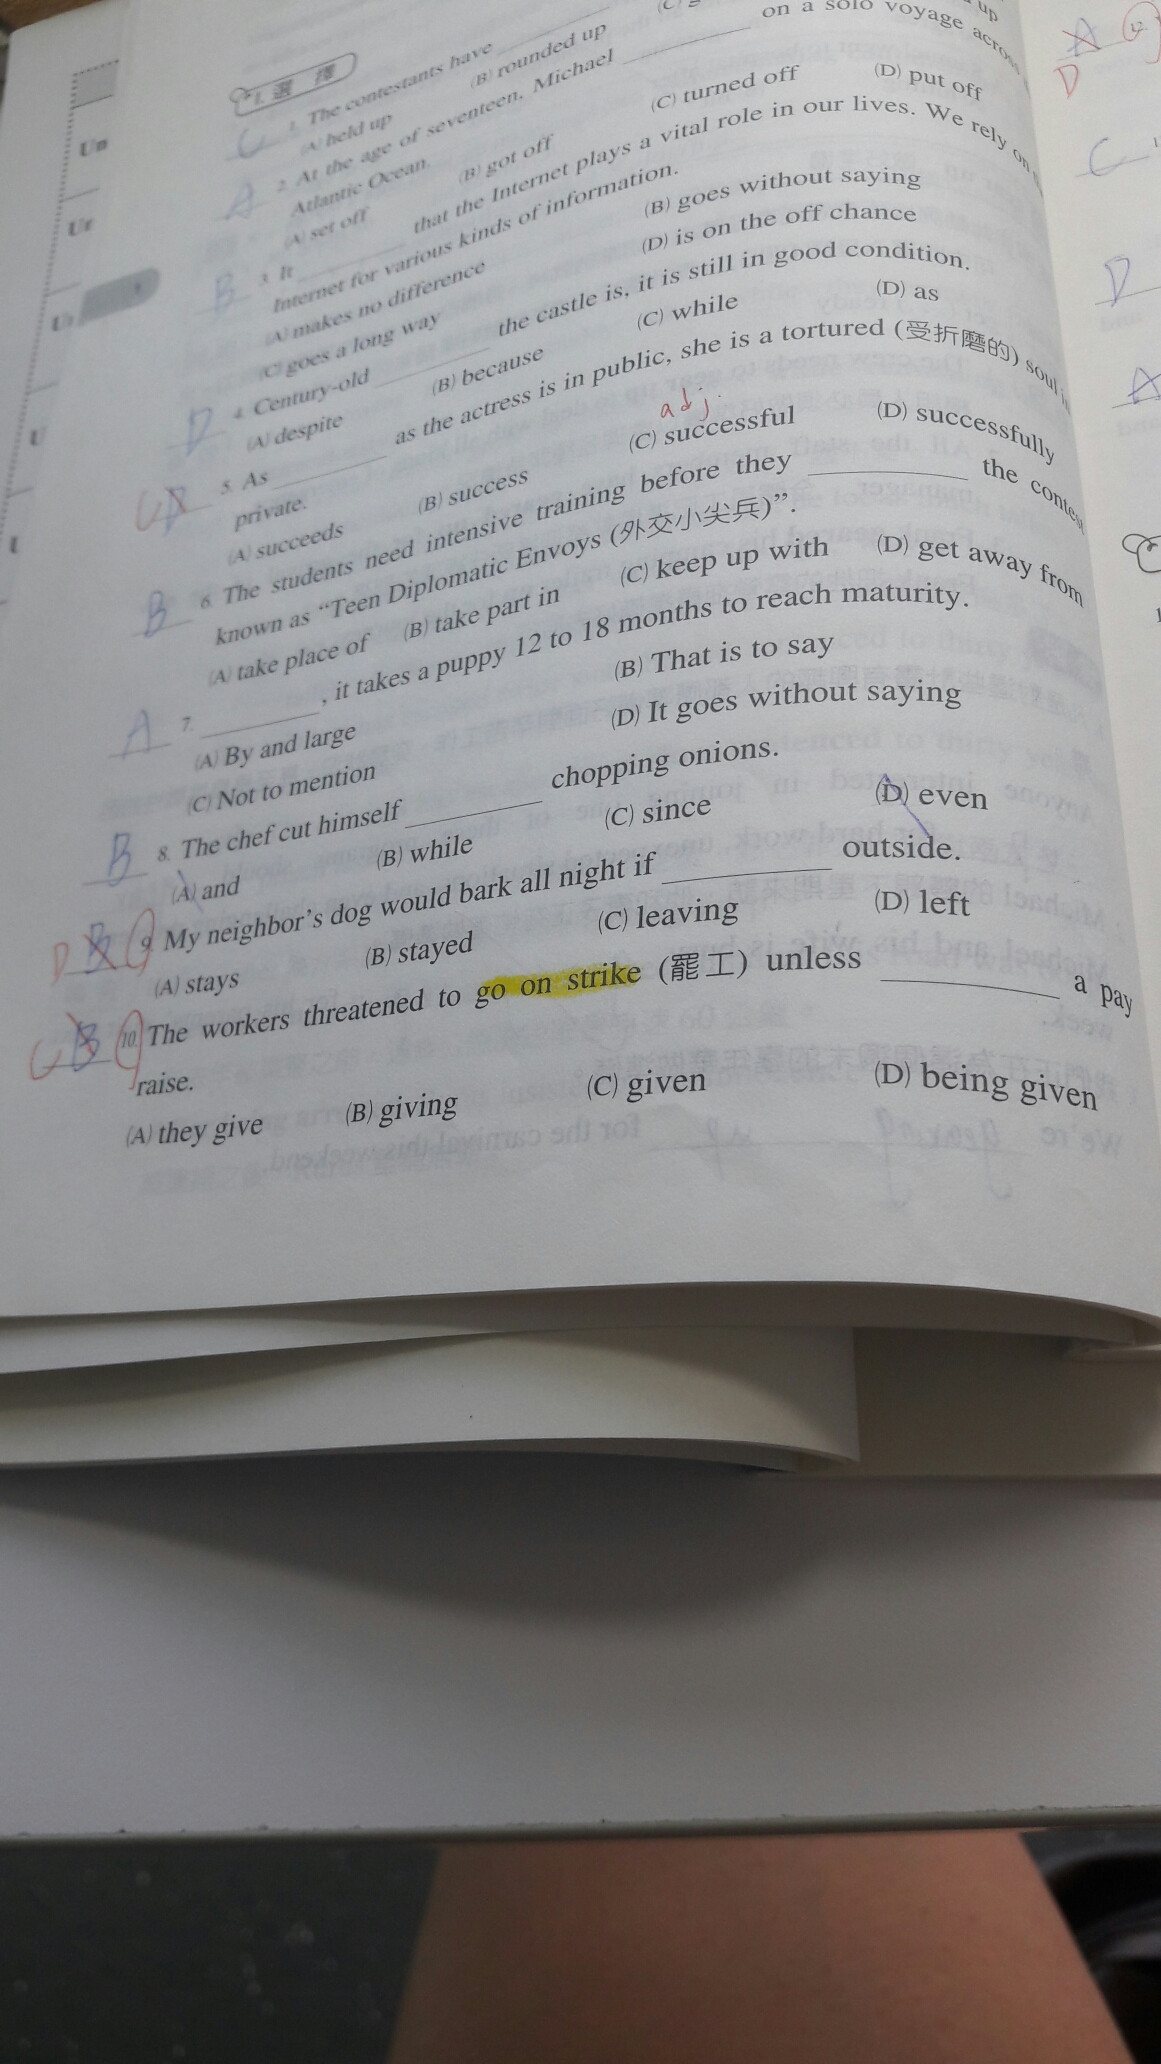 up
on a solo voyage across
I. 選 擇
C 1. The contestants have
(A) held up (B) rounded up
A 2. At the age of seventeen, Michael
Atlantic Ocean.
(A) set off (B) got off (C) turned off (D) put off
B 3. It ________ that the Internet plays a vital role in our lives. We rely on
Internet for various kinds of information.
(A) makes no difference (B) goes without saying
(C) goes a long way (D) is on the off chance
D 4. Century-old ________ the castle is, it is still in good condition.
(A) despite (B) because (C) while (D) as
C 5. As ________ as the actress is in public, she is a tortured (受折磨的) soul in
private.
adj.
(A) succeeds (B) success (C) successful (D) successfully
B 6. The students need intensive training before they ________ the contest
known as “Teen Diplomatic Envoys (外交小尖兵)”.
(A) take place of (B) take part in (C) keep up with (D) get away from
A 7. ________, it takes a puppy 12 to 18 months to reach maturity.
(A) By and large (B) That is to say
(C) Not to mention (D) It goes without saying
B 8. The chef cut himself ________ chopping onions.
(A) and (B) while (C) since (D) even
D B 9. My neighbor’s dog would bark all night if ________ outside.
(A) stays (B) stayed (C) leaving (D) left
C B 10. The workers threatened to go on strike (罷工) unless ________ a pay
raise.
(A) they give (B) giving (C) given (D) being given
A 12.
D
C
D
A